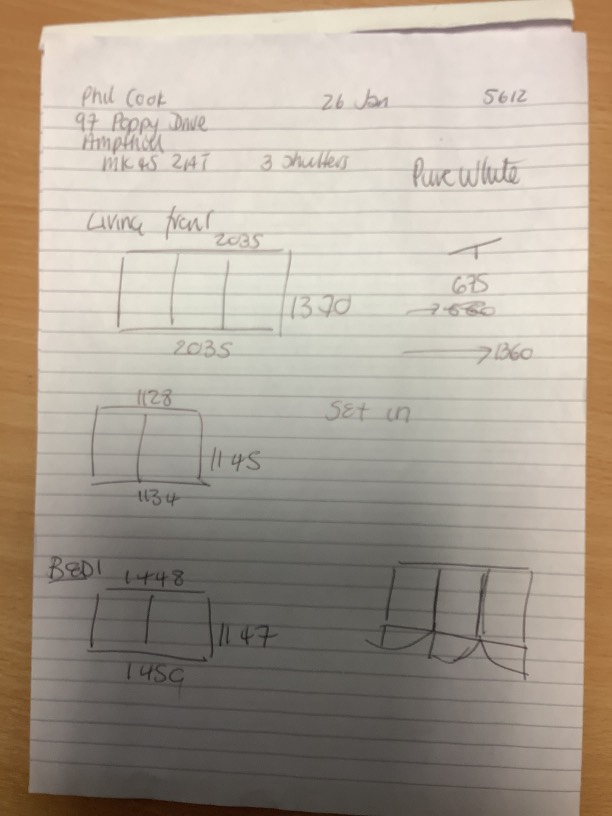 Phil Cook 26 Jan 5612
97 Poppy Drive
Ampthill
MK45 2AT 3 shutters Pure White
Living front
2035
T
675
1370
2035
→1360
1128
Set in
1145
1134
BED1
1448
1147